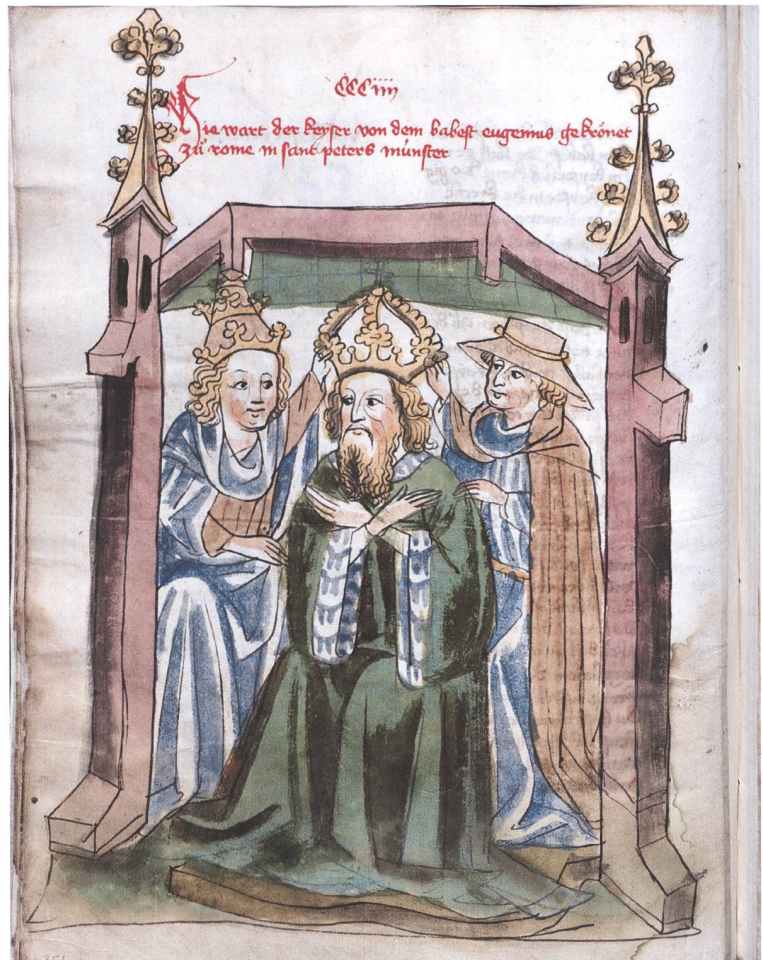 CCCiiij
Hie wart der keyser von dem babest eugenius gekrönet
zů rome in sant peters můnster